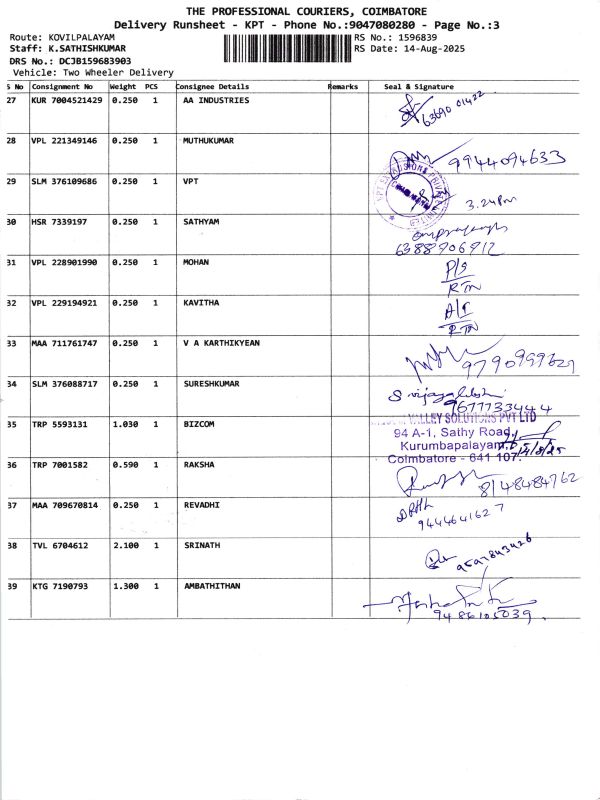 THE PROFESSIONAL COURIERS, COIMBATORE
Delivery Runsheet - KPT - Phone No.:9047080280 - Page No.:3
Route: KOVILPALAYAM RS No.: 1596839
Staff: K.SATHISHKUMAR RS Date: 14-Aug-2025
DRS No.: DCJB159683903
Vehicle: Two Wheeler Delivery
S No Consignment No Weight PCS Consignee Details Remarks Seal & Signature
27 KUR 7004521429 0.250 1 AA INDUSTRIES 63690 01422
28 VPL 221349146 0.250 1 MUTHUKUMAR 9944094633
29 SLM 376109686 0.250 1 VPT 3.24pm
30 HSR 7339197 0.250 1 SATHYAM
6388906912
31 VPL 228901990 0.250 1 MOHAN P/S
RTN
32 VPL 229194921 0.250 1 KAVITHA A/I
RTN
33 MAA 711761747 0.250 1 V A KARTHIKYEAN 9790999621
34 SLM 376088717 0.250 1 SURESHKUMAR S vijayalakshmi
9677733444
35 TRP 5593131 1.030 1 BIZCOM VALLEY SOLUTIONS PVT LTD
94 A-1, Sathy Road,
Kurumbapalayam, 14/8/25
Coimbatore - 641 107.
36 TRP 7001582 0.590 1 RAKSHA 8148484762
37 MAA 709670814 0.250 1 REVADHI
9444641627
38 TVL 6704612 2.100 1 SRINATH 9597843426
39 KTG 7190793 1.300 1 AMBATHITHAN
9486105039